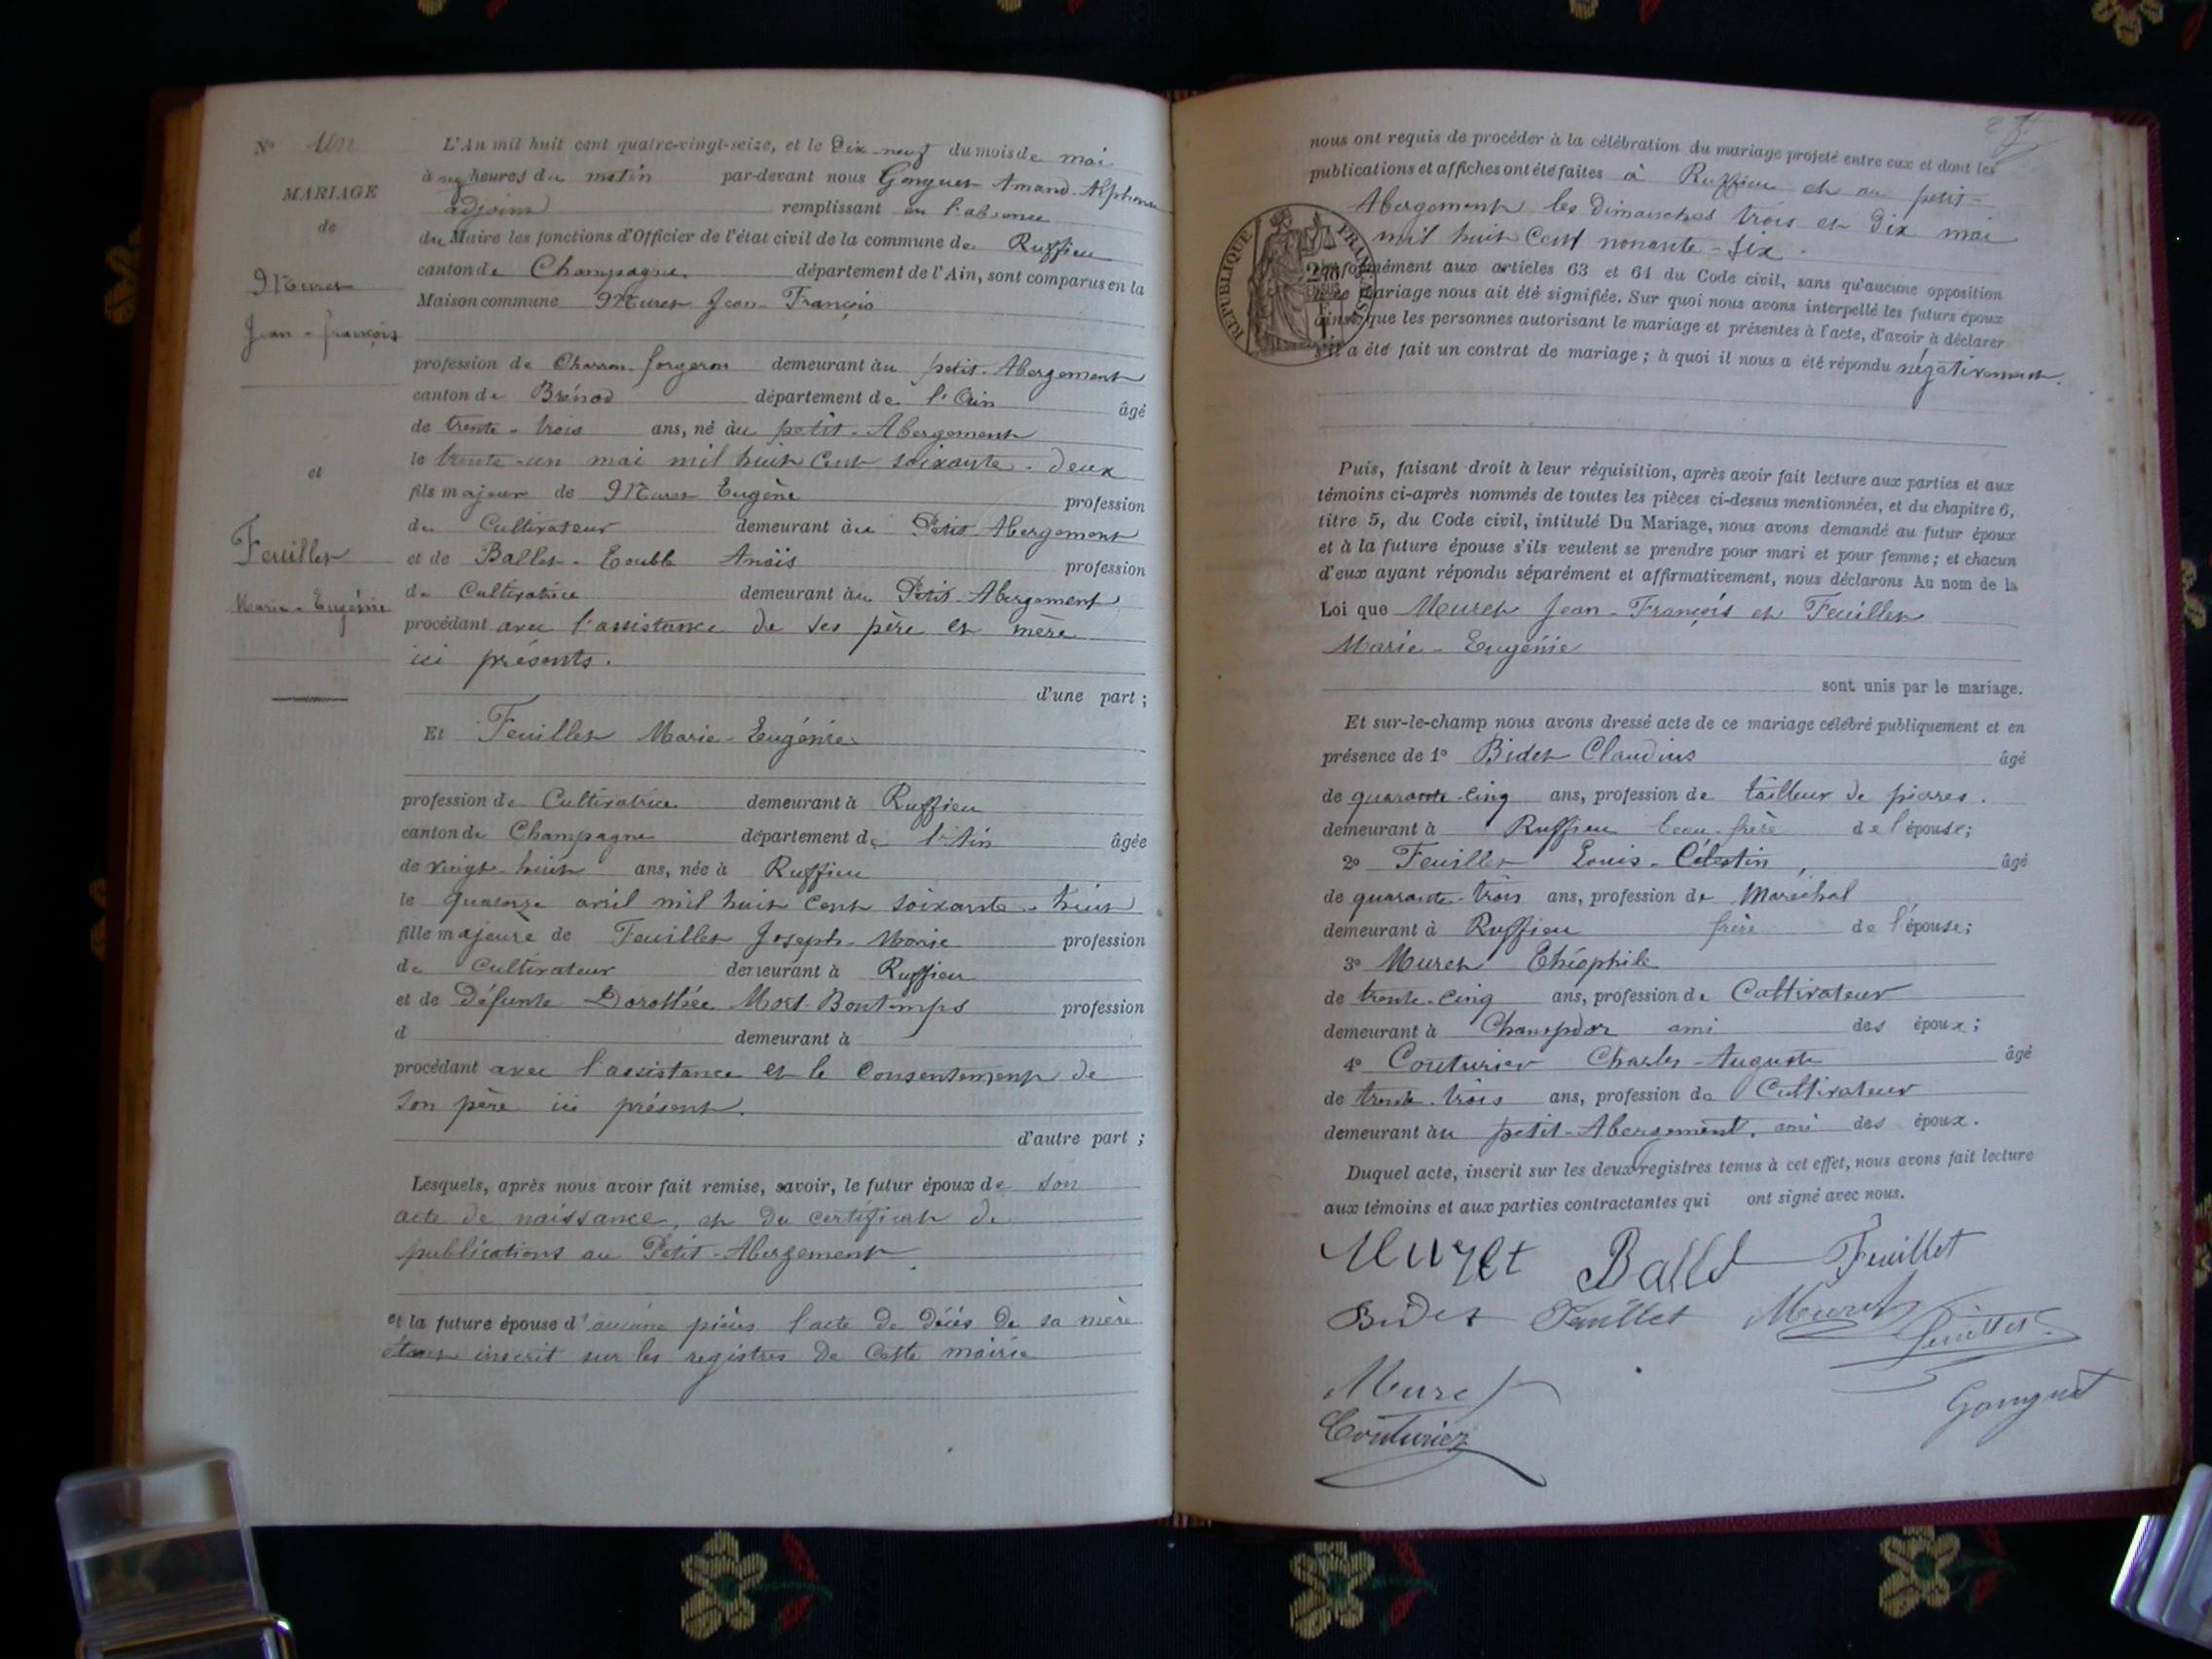 N° Un
MARIAGE
de
Muret
Jean-François
et
Feuillet
Marie-Eugénie
L'An mil huit cent quatre-vingt-seize, et le Dix-neuf du mois de mai
à heures du matin par-devant nous Gonguet Amand-Alphonse
adjoint remplissant en l'absence
du Maire les fonctions d'Officier de l'état civil de la commune de Ruffieu
canton de Champagne, département de l'Ain, sont comparus en la
Maison commune Muret Jean-François
profession de Charron-forgeron demeurant au petit-Abergement
canton de Brénod département de l'Ain âgé
de trente-trois ans, né au petit-Abergement
le trente-un mai mil huit cent soixante-deux
fils majeur de Muret Eugène profession
de Cultivateur demeurant au Petit-Abergement
et de Ballet-Couble Anaïs profession
de Cultivatrice demeurant au Petit-Abergement
procédant avec l'assistance de ses père et mère
ici présents.
d'une part ;
Et Feuillet Marie-Eugénie
profession de Cultivatrice demeurant à Ruffieu
canton de Champagne département de l'Ain âgée
de vingt-huit ans, née à Ruffieu
le quatorze avril mil huit cent soixante-huit
fille majeure de Feuillet Joseph-Marie profession
de Cultivateur demeurant à Ruffieu
et de Défunte Dorothée Mort-Bontemps profession
d demeurant à
procédant avec l'assistance et le Consentement de
son père ici présent.
d'autre part ;
Lesquels, après nous avoir fait remise, savoir, le futur époux de son
acte de naissance, et du certificat de
publications au Petit-Abergement.
et la future épouse d'aucune pièces l'acte de décès de sa mère
étant inscrit sur les registres de cette mairie
nous ont requis de procéder à la célébration du mariage projeté entre eux et dont les
publications et affiches ont été faites à Ruffieu et au petit-
Abergement les Dimanches trois et dix mai
mil huit cent nonante-six.
RÉPUBLIQUE FRANÇAISE
conformément aux articles 63 et 64 du Code civil, sans qu'aucune opposition
à ce mariage nous ait été signifiée. Sur quoi nous avons interpellé les futurs époux
ainsi que les personnes autorisant le mariage et présentes à l'acte, d'avoir à déclarer
s'il a été fait un contrat de mariage ; à quoi il nous a été répondu négativement.
Puis, faisant droit à leur réquisition, après avoir fait lecture aux parties et aux
témoins ci-après nommés de toutes les pièces ci-dessus mentionnées, et du chapitre 6,
titre 5, du Code civil, intitulé Du Mariage, nous avons demandé au futur époux
et à la future épouse s'ils veulent se prendre pour mari et pour femme ; et chacun
d'eux ayant répondu séparément et affirmativement, nous déclarons Au nom de la
Loi que Muret Jean-François et Feuillet
Marie-Eugénie
sont unis par le mariage.
Et sur-le-champ nous avons dressé acte de ce mariage célébré publiquement et en
présence de 1° Bidet Claudius âgé
de quarante-cinq ans, profession de tailleur de pierres.
demeurant à Ruffieu beau-frère de l'épouse ;
2° Feuillet Louis-Célestin, âgé
de quarante-trois ans, profession de Maréchal
demeurant à Ruffieu frère de l'épouse ;
3° Muret Théophile
de trente-cinq ans, profession de Cultivateur
demeurant à Champdor ami des époux ;
4° Couturier Charles-Auguste âgé
de trente-trois ans, profession de Cultivateur
demeurant au petit-Abergement, ami des époux.
Duquel acte, inscrit sur les deux registres tenus à cet effet, nous avons fait lecture
aux témoins et aux parties contractantes qui ont signé avec nous.
Muret Ballet Feuillet
Bidet Feuillet Muret Feuillet
Muret
Gonguet
Couturier